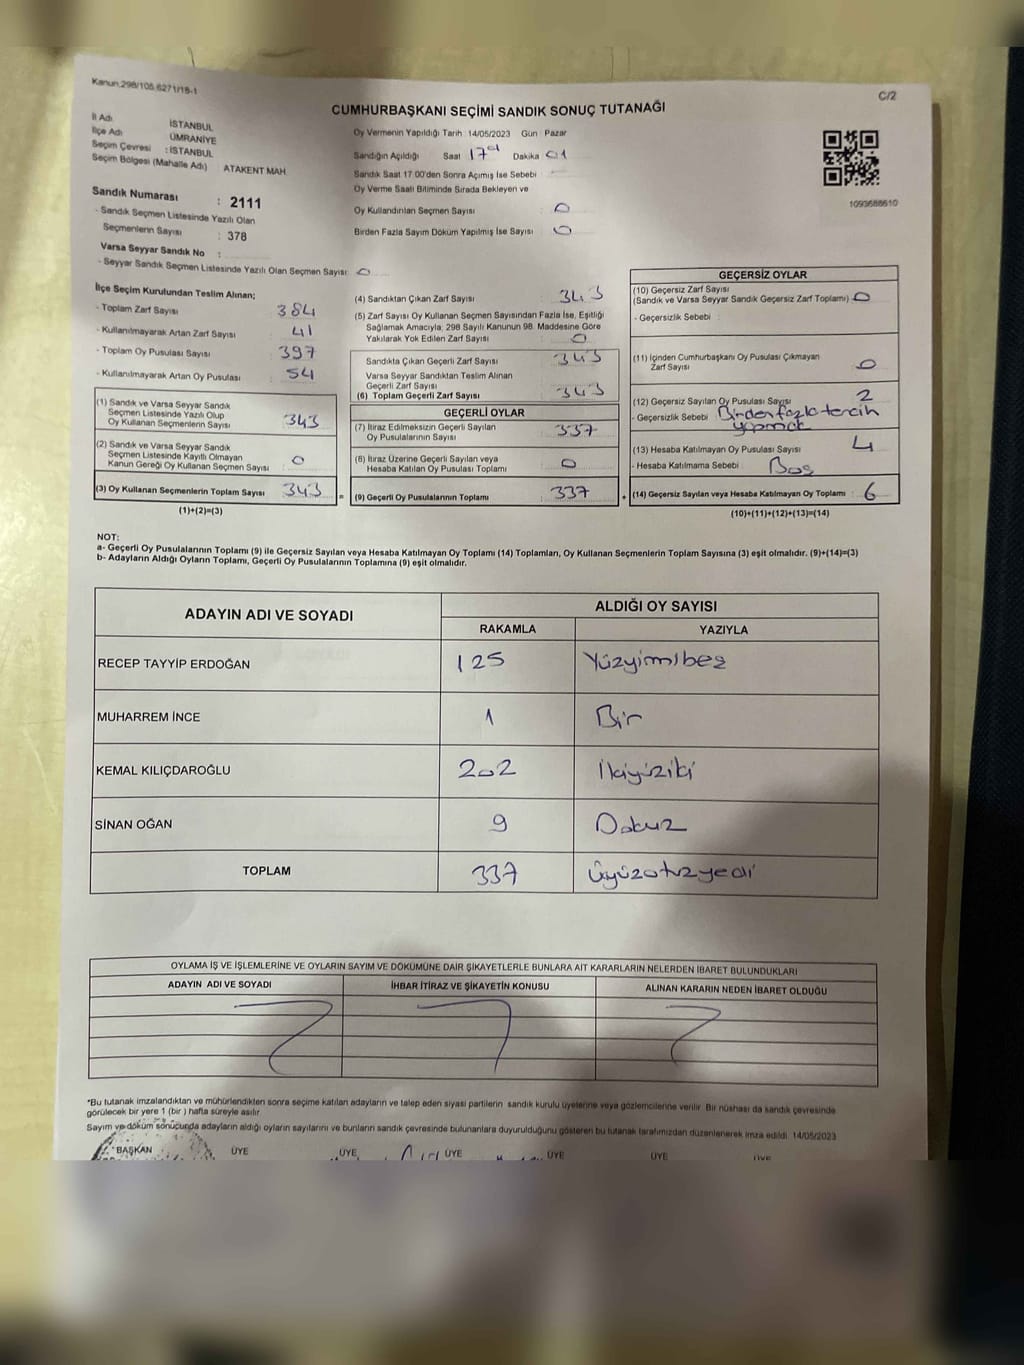 Kanun.298/105.6271/18-1
C/2
CUMHURBAŞKANI SEÇİMİ SANDIK SONUÇ TUTANAĞI
İl Adı İSTANBUL
İlçe Adı ÜMRANİYE
Seçim Çevresi : İSTANBUL
Seçim Bölgesi (Mahalle Adı) : ATAKENT MAH.
Sandık Numarası : 2111
- Sandık Seçmen Listesinde Yazılı Olan
Seçmenlerin Sayısı : 378
Varsa Seyyar Sandık No :
- Seyyar Sandık Seçmen Listesinde Yazılı Olan Seçmen Sayısı: 0
Oy Vermenin Yapıldığı Tarih : 14/05/2023 Gün : Pazar
Sandığın Açıldığı Saat 17 Dakika 01
Sandık Saat 17.00'den Sonra Açımış İse Sebebi :
Oy Verme Saati Bitiminde Sırada Bekleyen ve
Oy Kullandırılan Seçmen Sayısı : 0
Birden Fazla Sayım Döküm Yapılmış İse Sayısı : 0
1093688610
İlçe Seçim Kurulundan Teslim Alınan;
- Toplam Zarf Sayısı : 384
- Kullanılmayarak Artan Zarf Sayısı : 41
- Toplam Oy Pusulası Sayısı : 397
- Kullanılmayarak Artan Oy Pusulası : 54
(1) Sandık ve Varsa Seyyar Sandık
Seçmen Listesinde Yazılı Olup
Oy Kullanan Seçmenlerin Sayısı : 343
(2) Sandık ve Varsa Seyyar Sandık
Seçmen Listesinde Kayıtlı Olmayan
Kanun Gereği Oy Kullanan Seçmen Sayısı : 0
(3) Oy Kullanan Seçmenlerin Toplam Sayısı : 343
(1)+(2)=(3)
(4) Sandıktan Çıkan Zarf Sayısı : 343
(5) Zarf Sayısı Oy Kullanan Seçmen Sayısından Fazla İse, Eşitliği
Sağlamak Amacıyla; 298 Sayılı Kanunun 98. Maddesine Göre
Yakılarak Yok Edilen Zarf Sayısı : 0
Sandıkta Çıkan Geçerli Zarf Sayısı : 343
Varsa Seyyar Sandıktan Teslim Alınan
Geçerli Zarf Sayısı
(6) Toplam Geçerli Zarf Sayısı : 343
GEÇERLİ OYLAR
(7) İtiraz Edilmeksizin Geçerli Sayılan
Oy Pusulalarının Sayısı : 337
(8) İtiraz Üzerine Geçerli Sayılan veya
Hesaba Katılan Oy Pusulası Toplamı : 0
= (9) Geçerli Oy Pusulalarının Toplamı : 337 +
GEÇERSİZ OYLAR
(10) Geçersiz Zarf Sayısı
(Sandık ve Varsa Seyyar Sandık Geçersiz Zarf Toplamı) : 0
- Geçersizlik Sebebi :
(11) İçinden Cumhurbaşkanı Oy Pusulası Çıkmayan
Zarf Sayısı : 0
(12) Geçersiz Sayılan Oy Pusulası Sayısı : 2
- Geçersizlik Sebebi : Birden fazla tercih
yapmak
(13) Hesaba Katılmayan Oy Pusulası Sayısı : 4
- Hesaba Katılmama Sebebi : Boş
(14) Geçersiz Sayılan veya Hesaba Katılmayan Oy Toplamı : 6
(10)+(11)+(12)+(13)=(14)
NOT:
a- Geçerli Oy Pusulalarının Toplamı (9) ile Geçersiz Sayılan veya Hesaba Katılmayan Oy Toplamı (14) Toplamları, Oy Kullanan Seçmenlerin Toplam Sayısına (3) eşit olmalıdır. (9)+(14)=(3)
b- Adayların Aldığı Oyların Toplamı, Geçerli Oy Pusulalarının Toplamına (9) eşit olmalıdır.
ADAYIN ADI VE SOYADI ALDIĞI OY SAYISI
RAKAMLA YAZIYLA
RECEP TAYYİP ERDOĞAN 125 Yüzyimibeş
MUHARREM İNCE 1 Bir
KEMAL KILIÇDAROĞLU 202 İkiyüziki
SİNAN OĞAN 9 Dokuz
TOPLAM 337 Üçyüzotuzyedi
OYLAMA İŞ VE İŞLEMLERİNE VE OYLARIN SAYIM VE DÖKÜMÜNE DAİR ŞİKAYETLERLE BUNLARA AİT KARARLARIN NELERDEN İBARET BULUNDUKLARI
ADAYIN ADI VE SOYADI İHBAR İTİRAZ VE ŞİKAYETİN KONUSU ALINAN KARARIN NEDEN İBARET OLDUĞU
*Bu tutanak imzalandıktan ve mühürlendikten sonra seçime katılan adayların ve talep eden siyasi partilerin sandık kurulu üyelerine veya gözlemcilerine verilir. Bir nüshası da sandık çevresinde
görülecek bir yere 1 (bir ) hafta süreyle asılır.
Sayım ve döküm sonucunda adayların aldığı oyların sayılarını ve bunların sandık çevresinde bulunanlara duyurulduğunu gösteren bu tutanak tarafımızdan düzenlenerek imza edildi. 14/05/2023
BAŞKAN ÜYE ÜYE ÜYE ÜYE ÜYE ÜYE